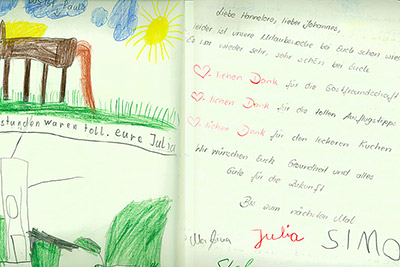 stunden waren toll. eure Julia
Liebe Hannelore, lieber Johannes,
leider ist unsere Urlaubswoche bei Euch schon
Es war wieder sehr, sehr schön bei Euch.
lichen Dank für die Gastfreundschaft
lichen Dank für die tollen Ausflugstipps
lichen Dank für den leckeren Kuchen
Wir wünschen Euch Gesundheit und alles
Gute für die Zukunft
Bis zum nächsten Mal
Julia
SIMO